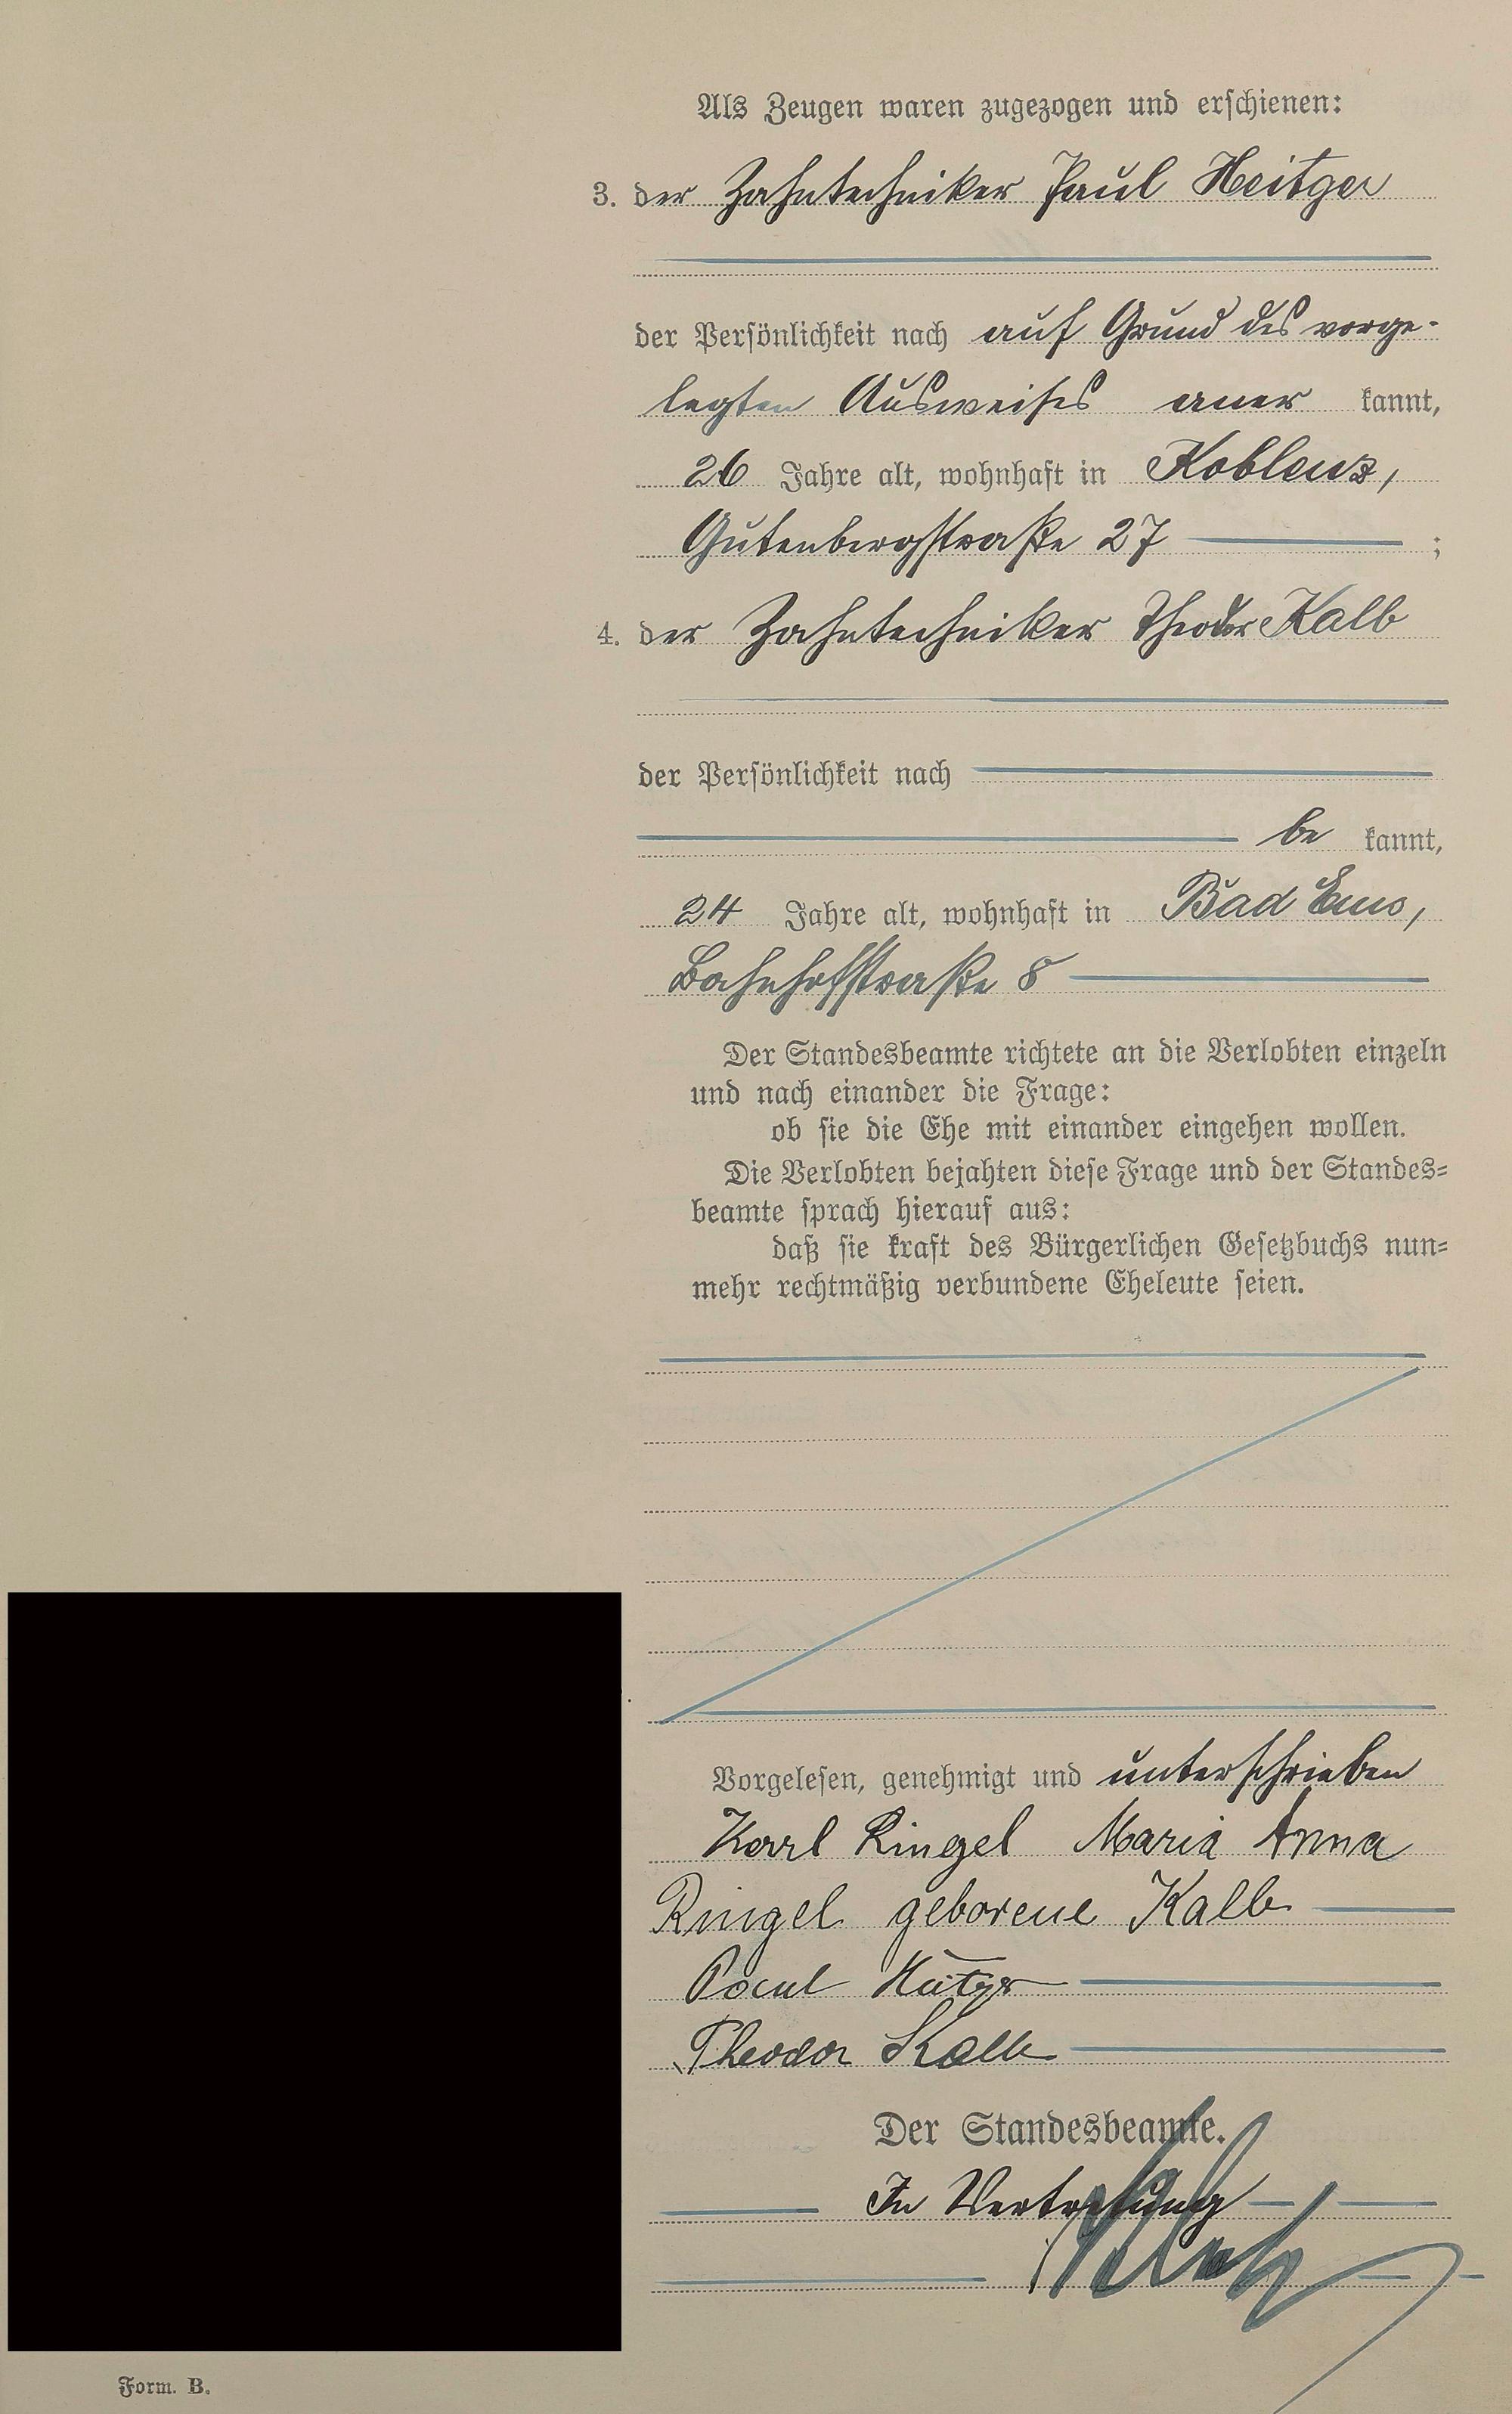 Als Zeugen waren zugezogen und erschienen:
3. der Zahntechniker Paul Heitger
der Persönlichkeit nach auf Grund des vorge-
legten Ausweises aner kannt,
26 Jahre alt, wohnhaft in Koblenz,
Gutenbergstraße 27 ;
4. der Zahntechniker Theodor Kalb
der Persönlichkeit nach
be kannt,
24 Jahre alt, wohnhaft in Bad Ems,
Bahnhofstraße 8
Der Standesbeamte richtete an die Verlobten einzeln
und nach einander die Frage:
ob sie die Ehe mit einander eingehen wollen.
Die Verlobten bejahten diese Frage und der Standes-
beamte sprach hierauf aus:
daß sie kraft des Bürgerlichen Gesetzbuchs nun-
mehr rechtmäßig verbundene Eheleute seien.
Vorgelesen, genehmigt und unterschrieben
Karl Ringel Maria Anna
Ringel geborene Kalb
Paul Heitger
Theodor Kalb
Der Standesbeamte.
In Vertretung
Form. B.